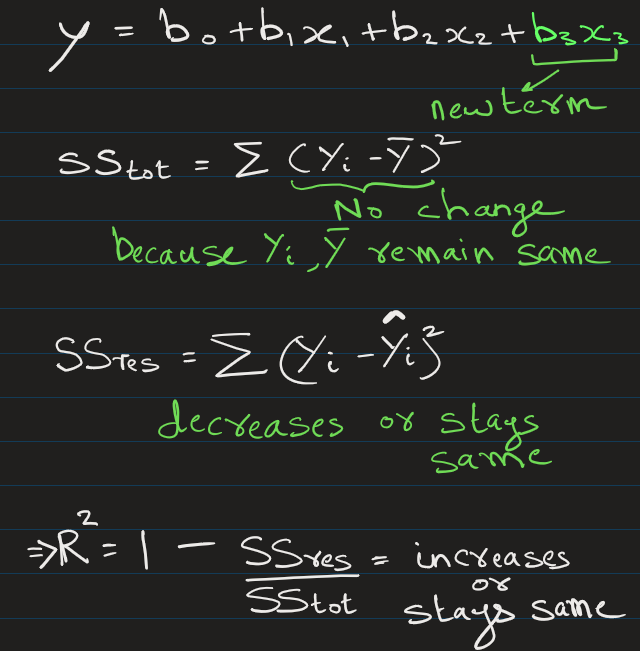 y = b₀ + b₁x₁ + b₂x₂ + b₃x₃
new term
SStot = Σ (Yi - Ȳ)²
No change
because Yi, Ȳ remain same
SSres = Σ (Yi - Ŷi)²
decreases or stays
same
⇒ R² = 1 - SSres/SStot = increases
or
stays same